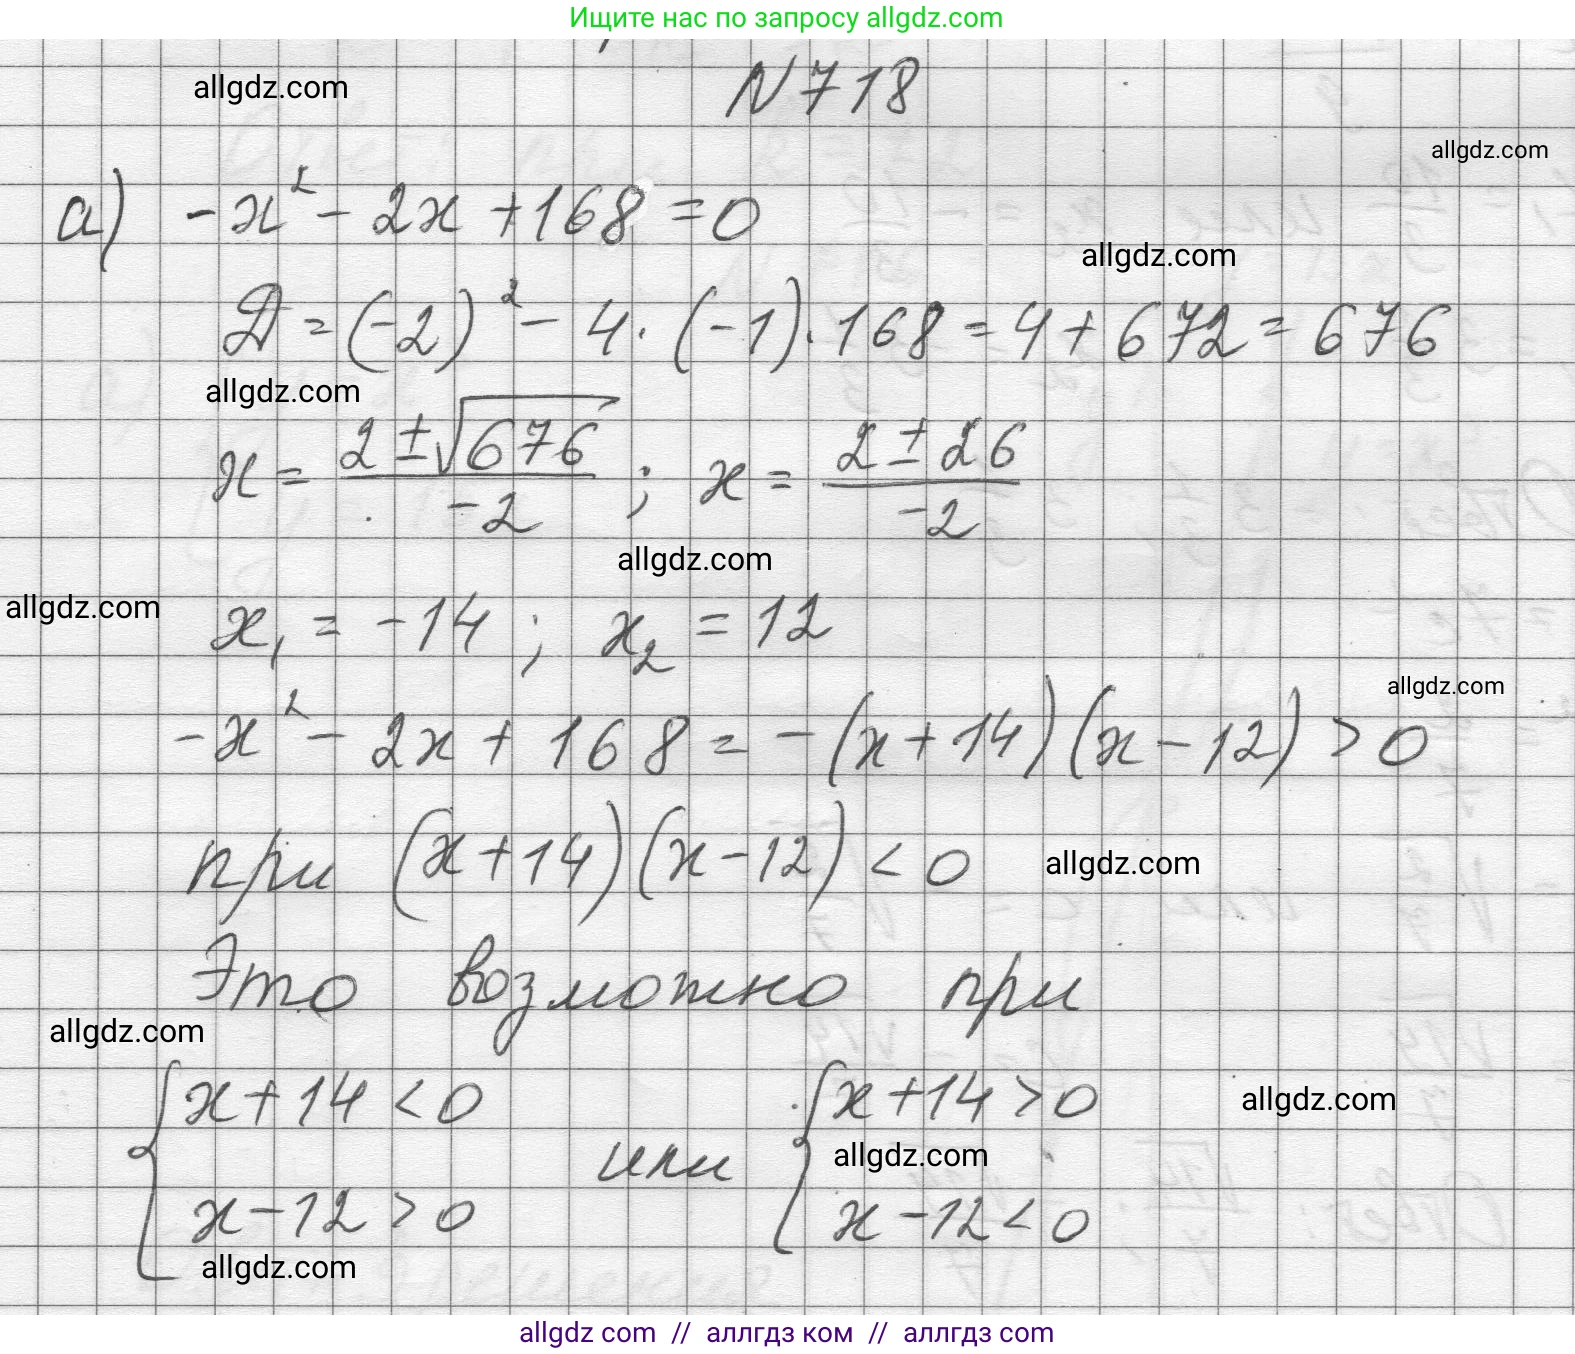 Ищите нас по запросу allgdz.com
allgdz.com
N 718
allgdz.com
а) -x² - 2x + 168 = 0
allgdz.com
Д = (-2)² - 4 · (-1) · 168 = 4 + 672 = 676
allgdz.com
x = (2 ± √676) / -2 ; x = (2 ± 26) / -2
allgdz.com
allgdz.com
x₁ = -14 ; x₂ = 12
allgdz.com
-x² - 2x + 168 = -(x + 14)(x - 12) > 0
при (x + 14)(x - 12) < 0
allgdz.com
Это возможно при
allgdz.com
{ x + 14 < 0 или { x + 14 > 0
allgdz.com
allgdz.com
x - 12 > 0 x - 12 < 0
allgdz.com
allgdz com // аллгдз ком // аллгдз com